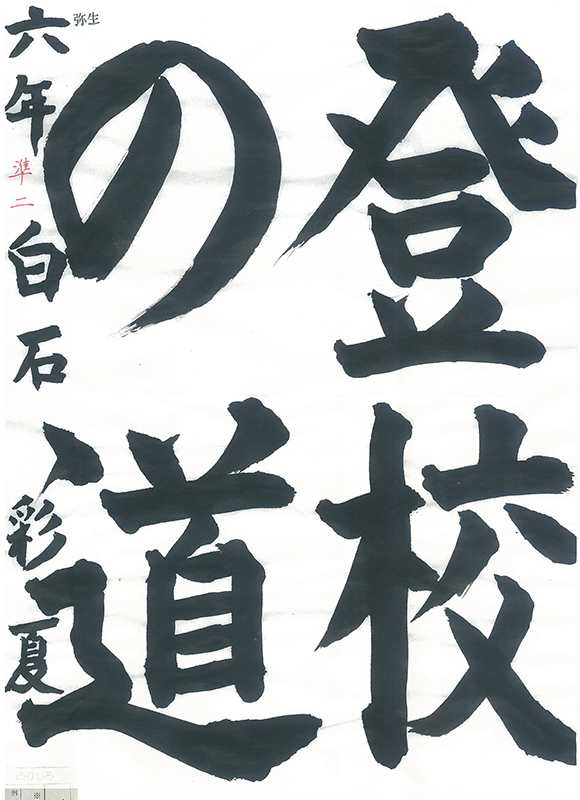 登校
の道
弥生
六年 準二 白石 彩夏
のりしろ
例
※